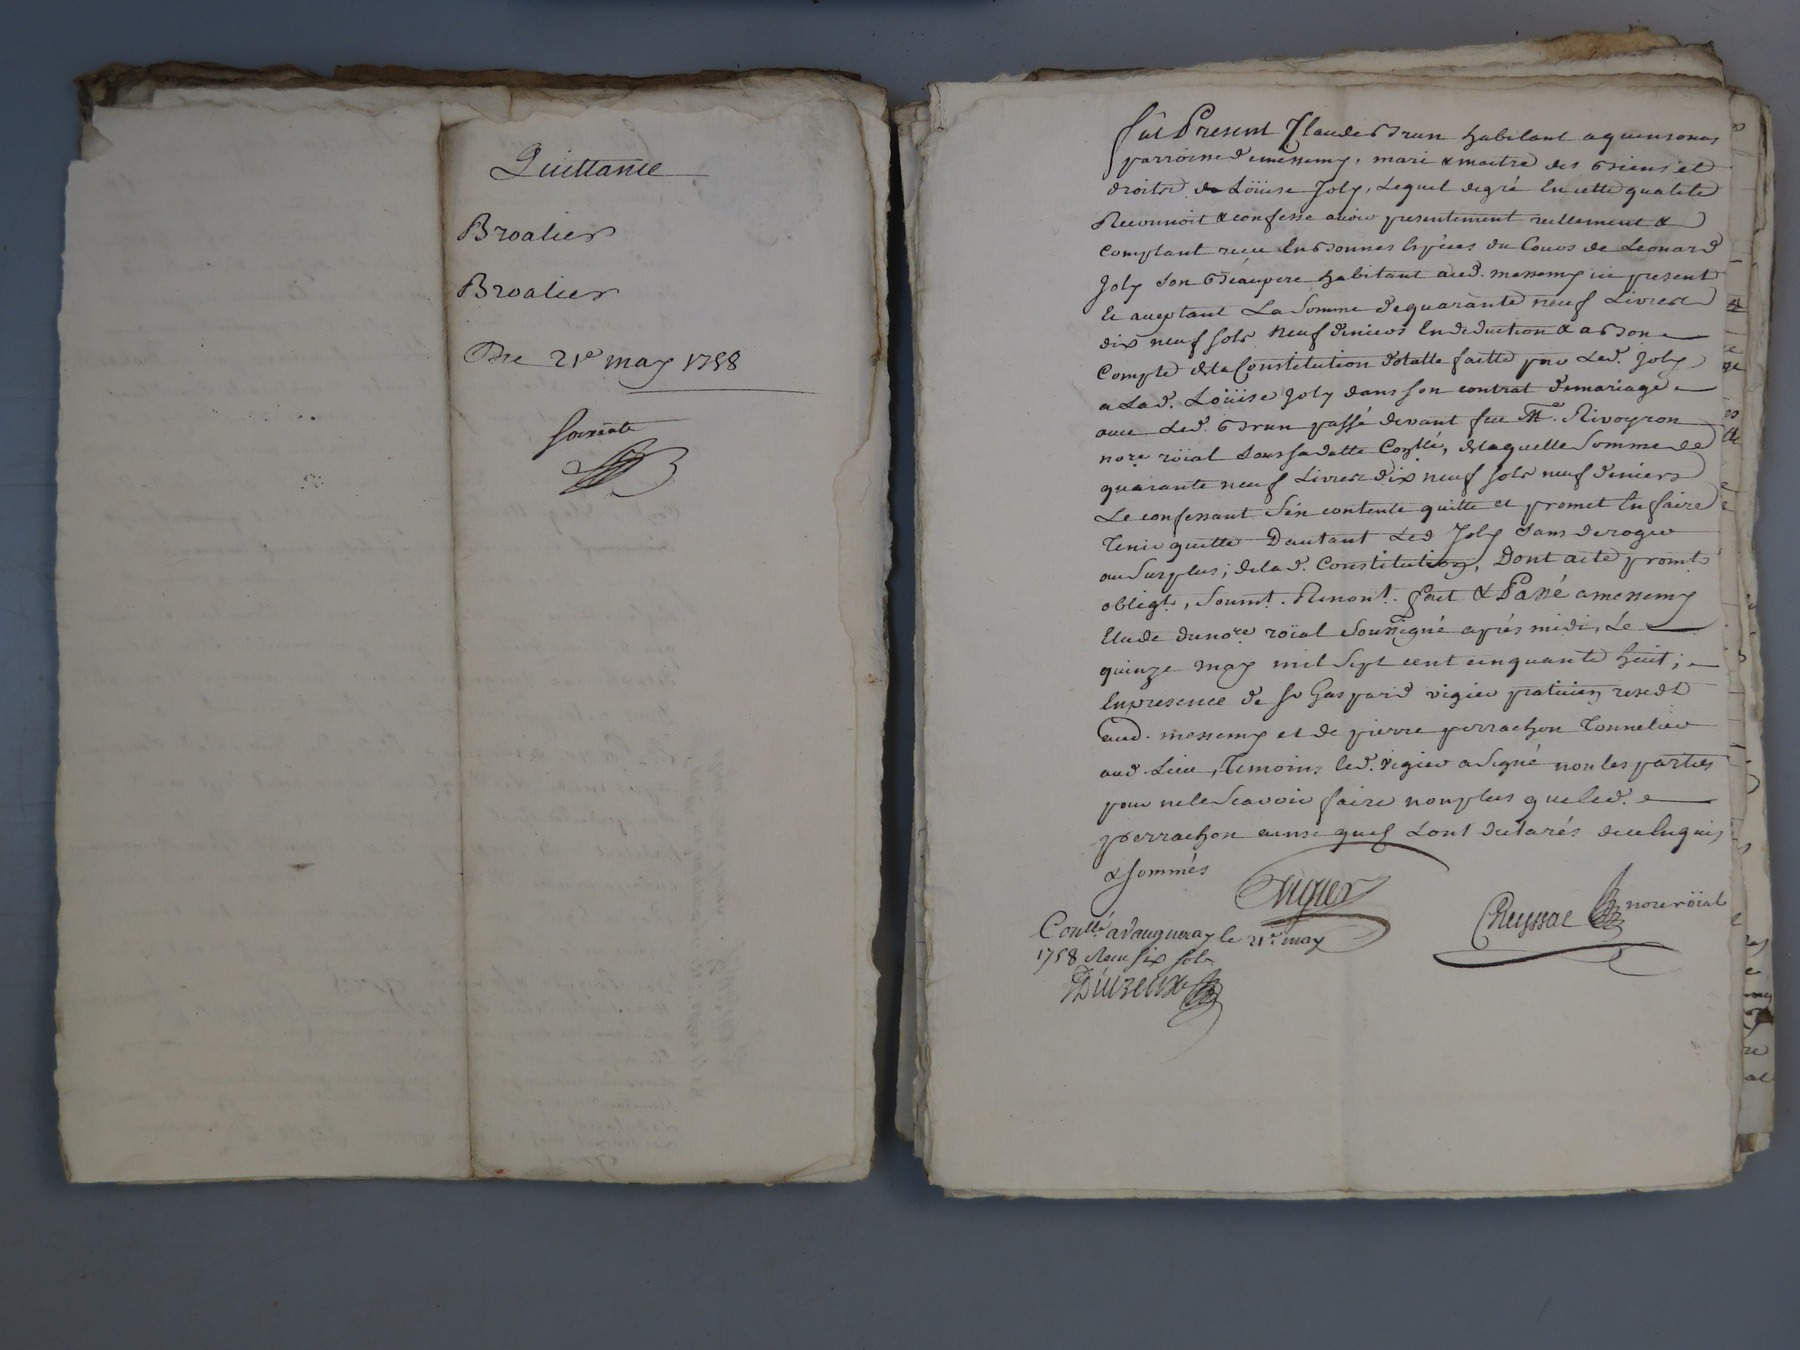 Quittance
Broalier
Broalier
Du 21e may 1758
fut Present Claude Brun habitant a
parroisse de messemy, mari & maitre des Biens et
droits de Loüise Joly, Lequel de gré En cette qualité
Reconnoit & confesse avoir presentement reellement &
comptant receu En Bonnes Espéces du Cours de Leonard
Joly Son Béaupere habitant aud. messemy icy present
Et aceptant La Somme de quarante neuf Livres
dix neuf sols neuf deniers En deduction & a Bon
Compte de la Constitution dotalle faitte par Led. Joly
a Lad. Loüise Joly dans son contrat de mariage
avec Led. Brun passé devant feu Me. Rivoyron
nore. roïal Sous sa datte Conllé, de laquelle Somme de
quarante neuf Livres dix neuf sols neuf deniers
Le confessant S'en contente quitte et promet En faire
Tenir quitte Dautant Led Joly Sans deroger
au Surplus, de lad. Constitution, Dont acte promts
obligt, Soumt. Renont. fait & Passé a messemy
Etude du nore roïal Soussigné aprés midi, Le
quinze may mil Sept cent cinquante huit;
En presence de sr Gaspard vigier praticien residt
aud. messemy et de pierre perrachon Tonnelier
aud. Lieu, Temoins led. vigier a Signé non les parties
pour ne le Scavoir faire non plus que led.
perrachon ainsi quils Sont declarés de ce Enquis
& sommés
Vigier
Cheyssac nore roïal
Conllé a vaugneray le 21e may
1758 Receu six sols